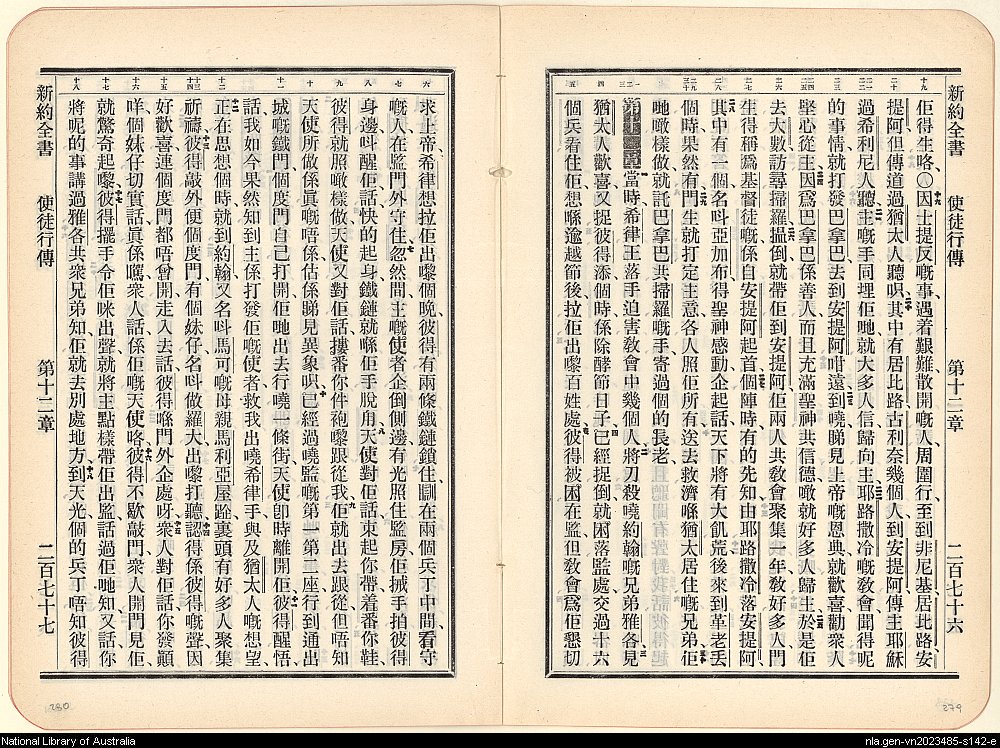 新約全書　使徒行傳　第十二章　二百七十六
佢得生咯〇因士提反嘅事遇着艱難散開嘅人周圍行至到非尼基居比路安
提阿但傳道過猶太人聽呮其中有居比路古利奈幾個人到安提阿傳主耶穌
過希利尼人聽主嘅手同埋佢哋就大多人信歸向主耶路撒冷嘅敎會聞得呢
的事情就打發巴拿巴去到安提阿咁遠到嘵睇見上帝嘅恩典就歡喜勸衆人
堅心從主因爲巴拿巴係善人而且充滿聖神共信德噉就好多人歸主於是佢
去大數訪尋掃羅揾倒就帶佢到安提阿佢兩人共敎會聚集一年敎好多人門
生得稱爲基督徒嘅係自安提阿起首個陣時有的先知由耶路撒冷落安提阿
其中有一個名呌亞加布得聖神感動企起話天下將有大飢荒後來到革老丟
個時果然有門生就打定主意各人照佢所有送去救濟喺猶太居住嘅兄弟佢
哋噉樣做就託巴拿巴共掃羅嘅手寄過個的長老
第十二章當時希律王落手迫害敎會中幾個人將刀殺嘵約翰嘅兄弟雅各見
猶太人歡喜又捉彼得添個時係除酵節日子已經捉倒就困落監處交過十六
個兵看住佢想喺逾越節後拉佢出嚟百姓處彼得被困在監但敎會爲佢懇切
求上帝希律想拉佢出嚟個晚彼得有兩條鐵鏈鎖住瞓在兩個兵丁中間看守
嘅人在監門外守住忽然間主嘅使者企倒側邊有光照住監房佢拍彼得
身邊呌醒佢話快的起身鐵鏈就喺佢手脫甪天使對佢話束起你帶着番你鞋
彼得就照噉樣做天使又對佢話摟番你件袍嚟跟從我佢就出去跟從但唔知
天使所做係眞嘅唔係估係睇見異象呮已經過嘵監嘅第一第二座行到通出
城嘅鐵門個度門自己打開佢哋出去行嘵一條街天使卽時離開佢彼得醒悟
話我如今果然知到主係打發佢嘅使者救我出嘵希律手與及猶太人嘅想望
正在思想個時就到約翰又名呌馬可嘅母親馬利亞屋跲裏頭有好多人聚集
祈禱彼得敲外便個度門有個妹仔名呌做羅大出嚟打聽認得係彼得嘅聲因
好歡喜連個度門都唔曾開走入去話彼得喺門外企處呀衆人對佢話你發顚
咩個妹仔切實話眞係嘅衆人話係佢嘅天使咯彼得不歇敲門衆人開門見佢
就驚奇起嚟彼得擺手令佢咪出聲就將主點樣帶佢出監話過佢哋知又話你
將呢的事講過雅各共衆兄弟知佢就去別處地方到天光個的兵丁唔知彼得
新約全書　使徒行傳　第十二章　二百七十七
280
279
National Library of Australia
nla.gen-vn2023485-s142-e